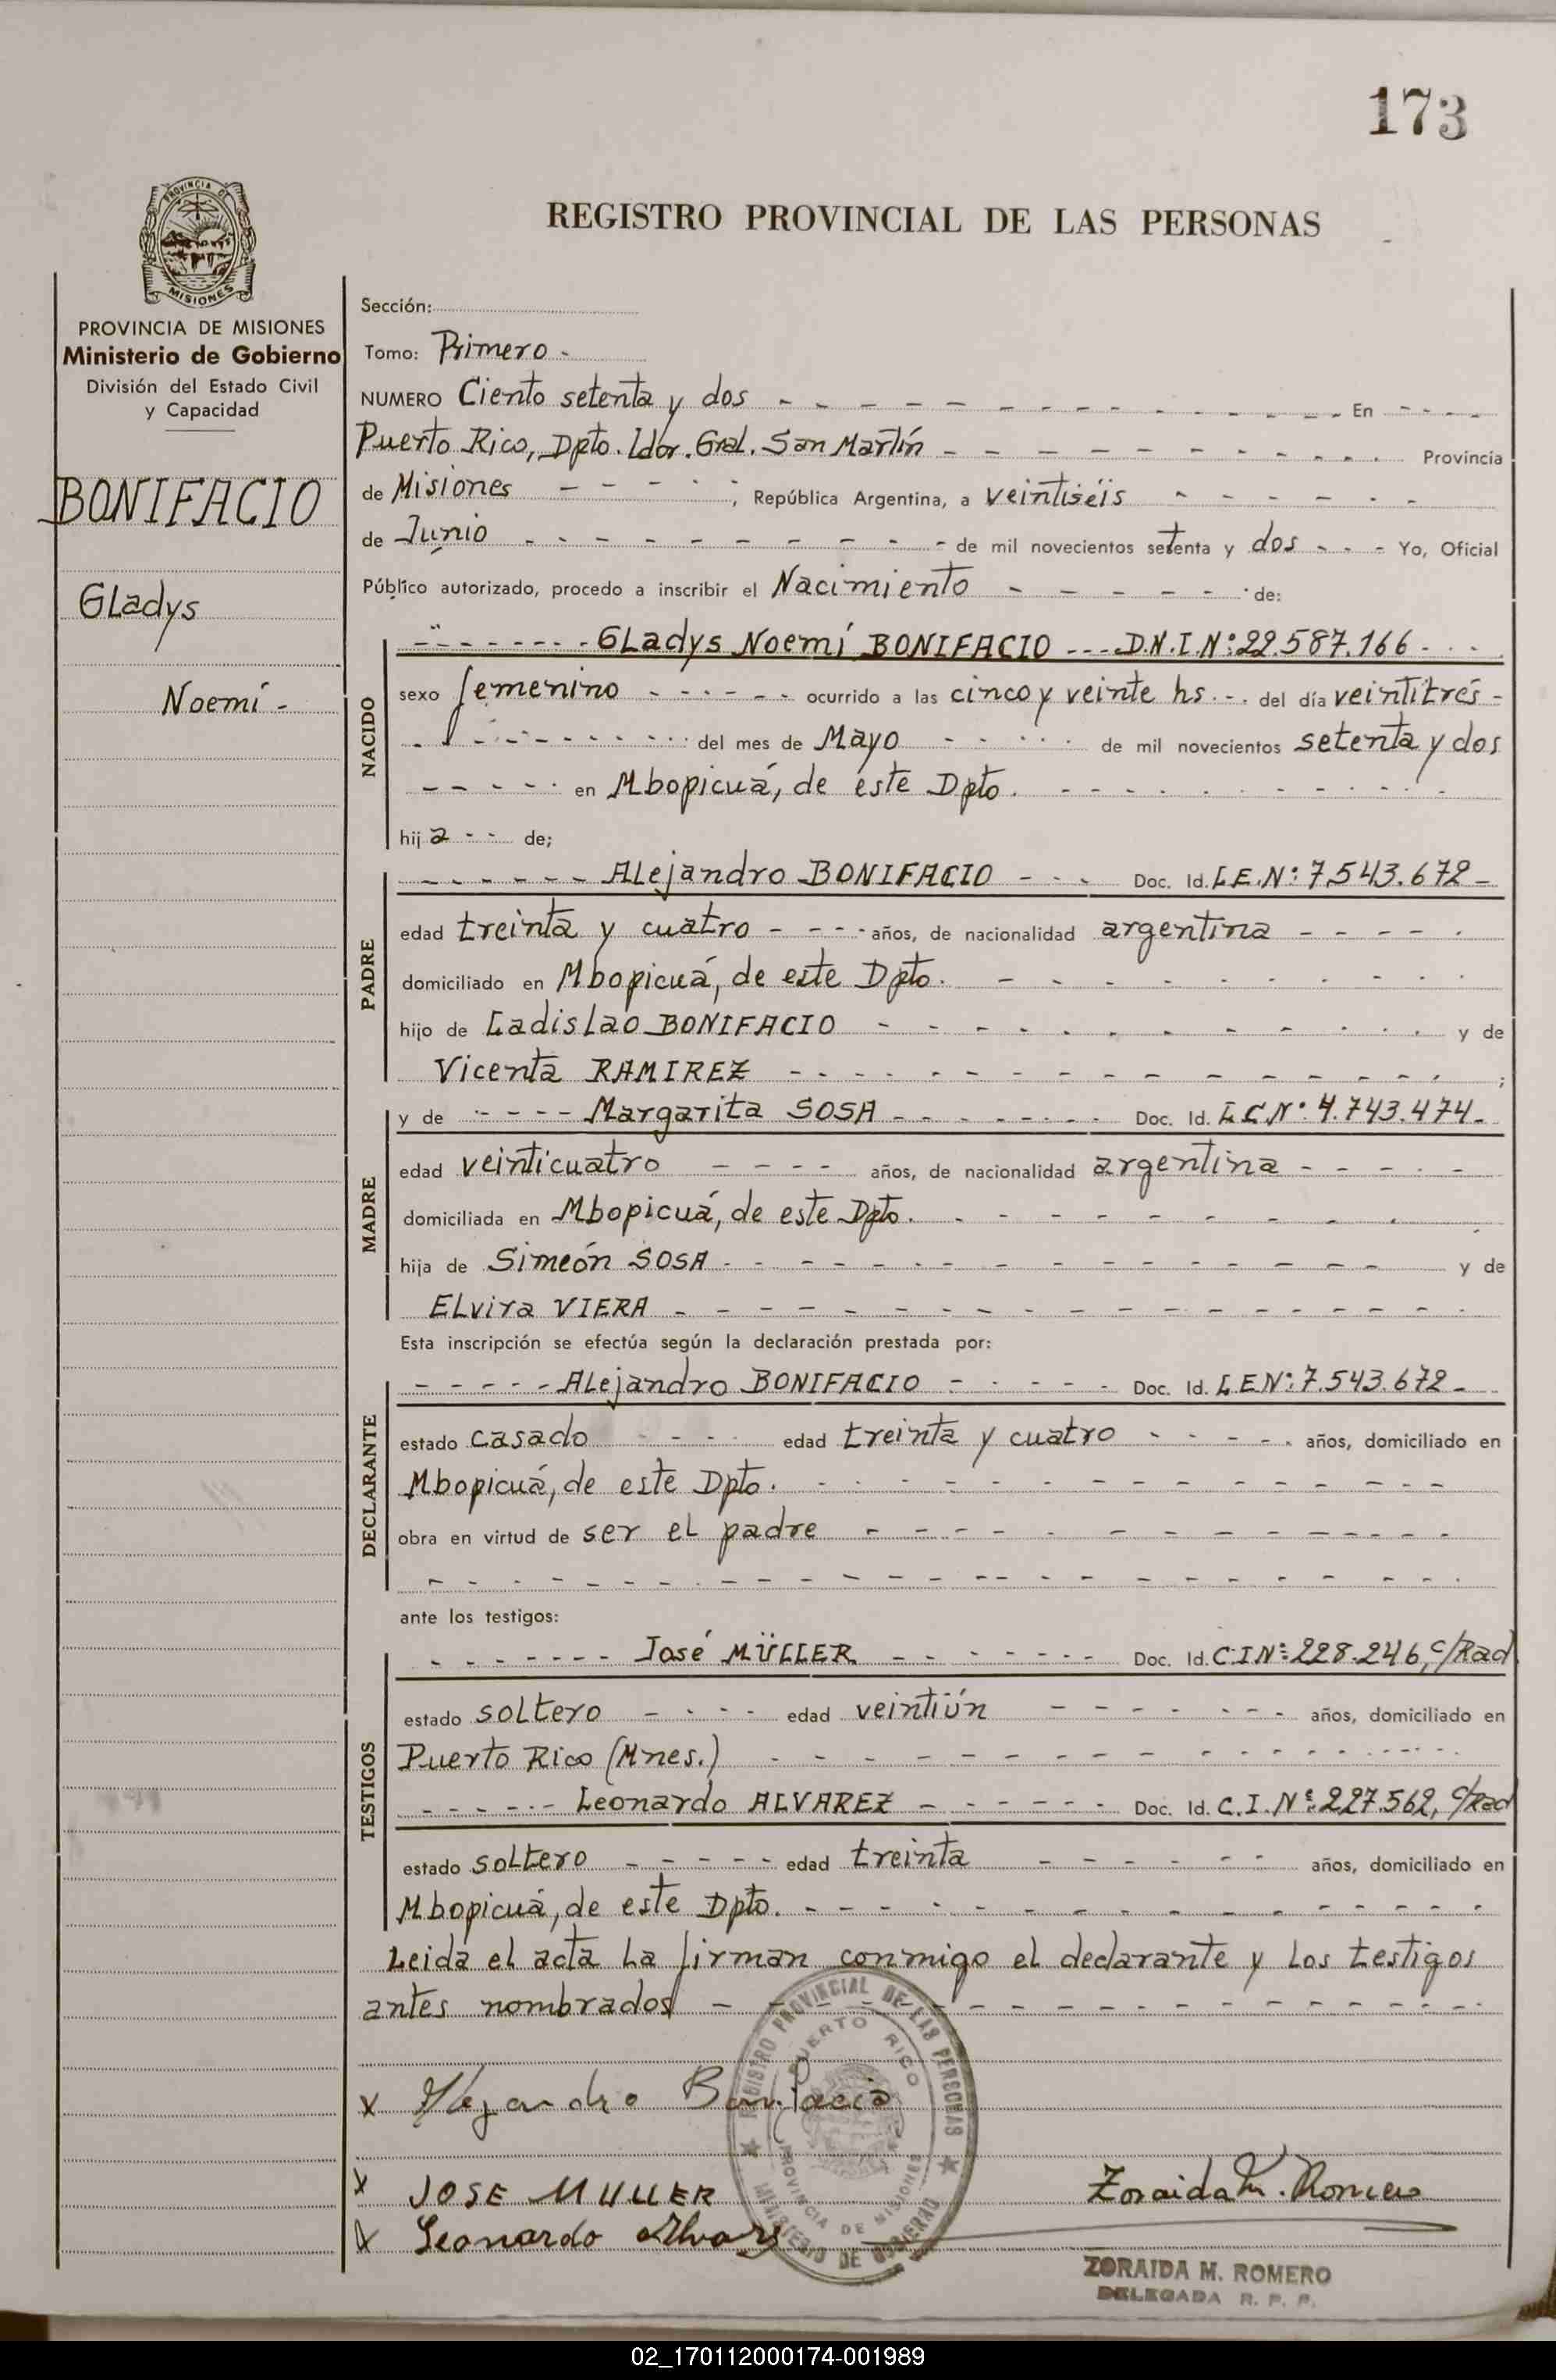 173
REGISTRO PROVINCIAL DE LAS PERSONAS
PROVINCIA DE
MISIONES
PROVINCIA DE MISIONES
Ministerio de Gobierno
División del Estado Civil
y Capacidad
BONIFACIO
Gladys
Noemí -
Sección:
Tomo: Primero -
NUMERO Ciento setenta y dos - - - En - - -
Puerto Rico, Dpto. Ldor. Gral. San Martín - - - Provincia
de Misiones - - - ; República Argentina, a veintiséis - - -
de Junio - - - de mil novecientos setenta y dos - - - Yo, Oficial
Público autorizado, procedo a inscribir el Nacimiento - - - de:
NACIDO
- - - Gladys Noemí BONIFACIO - - - D.N.I.Nº:22.587.166 - - -
sexo femenino - - - ocurrido a las cinco y veinte hs. - - del día veintitrés -
- - - del mes de Mayo - - - de mil novecientos setenta y dos
- - - en Mbopicuá, de éste Dpto. - - -
hij a - - de;
PADRE
- - - Alejandro BONIFACIO - - - Doc. Id. L.E.Nº: 7.543.672 -
edad treinta y cuatro - - - años, de nacionalidad argentina - - -
domiciliado en Mbopicuá, de este Dpto. - - -
hijo de Ladislao BONIFACIO - - - y de
Vicenta RAMIREZ - - - ;
MADRE
y de - - - Margarita SOSA - - - Doc. Id. L.C.Nº 4.743.474 -
edad veinticuatro - - - años, de nacionalidad argentina - - -
domiciliada en Mbopicuá, de este Dpto. - - -
hija de Simeón SOSA - - - y de
Elvira VIERA - - -
Esta inscripción se efectúa según la declaración prestada por:
DECLARANTE
- - - Alejandro BONIFACIO - - - Doc. Id. L.E.Nº: 7.543.672 -
estado casado - - - edad treinta y cuatro - - - años, domiciliado en
Mbopicuá, de este Dpto. - - -
obra en virtud de ser el padre - - -
- - -
ante los testigos:
TESTIGOS
- - - José MÜLLER - - - Doc. Id. C.I.Nº: 228.246, C/Rad
estado soltero - - - edad veintiún - - - años, domiciliado en
Puerto Rico (Mnes.) - - -
- - - Leonardo ALVAREZ - - - Doc. Id. C.I.Nº: 227.562, C/Rad
estado soltero - - - edad treinta - - - años, domiciliado en
Mbopicuá, de este Dpto. - - -
Leida el acta la firman conmigo el declarante y los testigos
antes nombrados - - -
REGISTRO PROVINCIAL DE LAS PERSONAS
PUERTO RICO
PROVINCIA DE MISIONES
MINISTERIO DE GOBIERNO
x Alejandro Bonifacio
x JOSE MULLER
x Leonardo Alvarez
Zoraida M. Romero
ZORAIDA M. ROMERO
DELEGADA R. P. P.
02_170112000174-001989